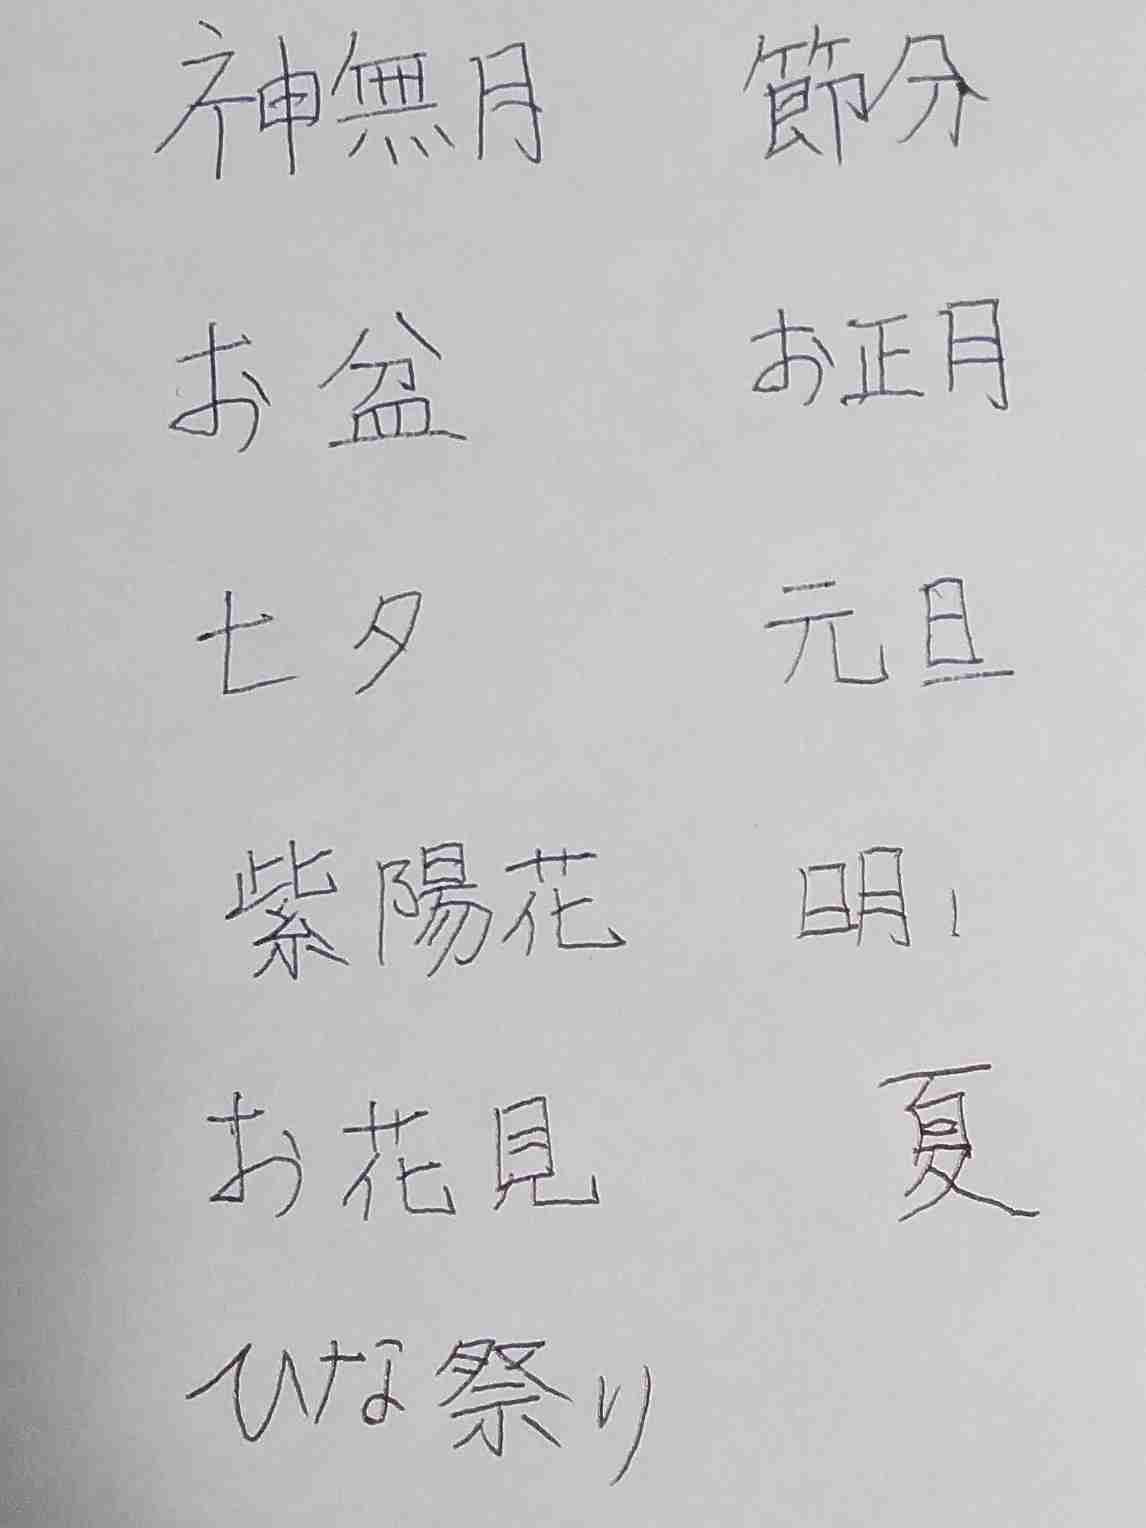 神無月 節分
お盆 お正月
七夕 元旦
紫陽花 明
お花見 夏
ひな祭り